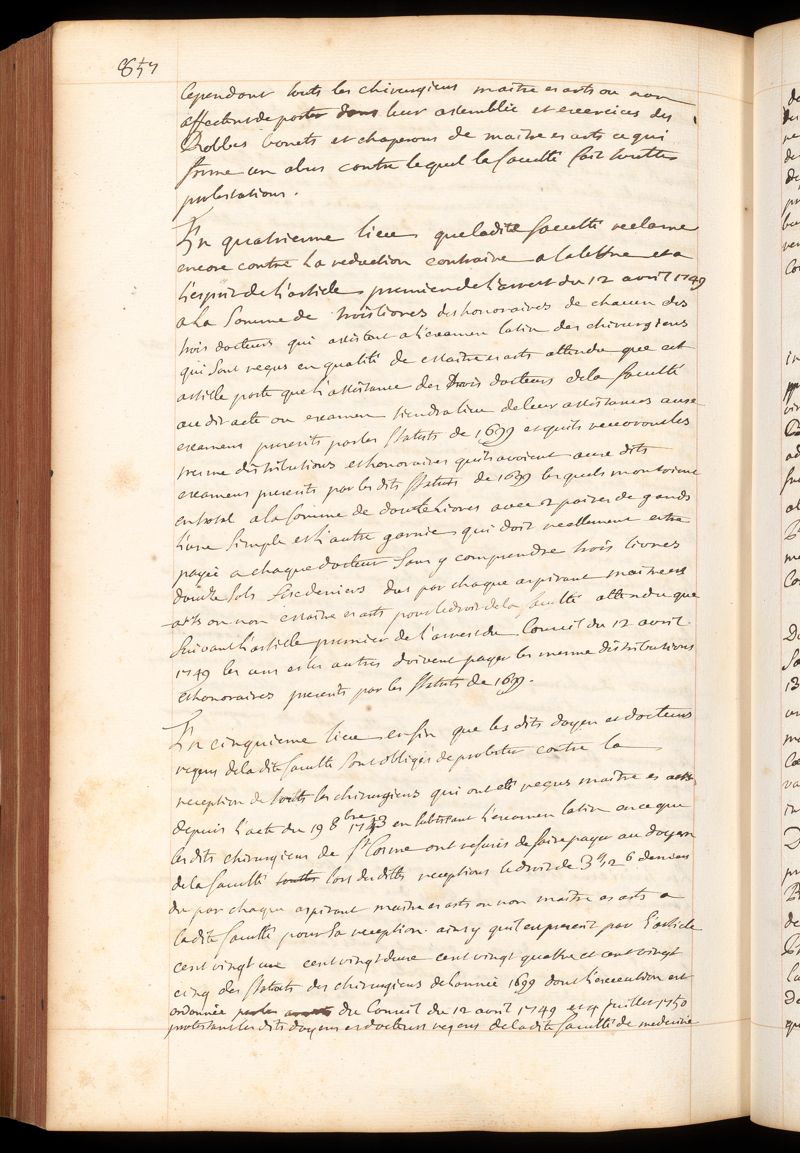 857
Cependant touts les chirurgiens maitre es arts ou non
affectent de porter dans leur assemblée et exercices des
Robbes bonets et chaperons de maitre es arts ce qui
forme un abus contre lequel la faculté fait touttes
protestations.
En quatrieme lieu que ladite faculté reclame
encore contre la reduction contraire a la lettre et a
l'esprit de l'article premier de l'arrest du 12 avril 1749
a la somme de trois livres des honoraires de chacun des
trois docteurs qui assistent a l'examen latin des chirurgiens
qui sont reçus en qualité de maitre es arts attendu que cet
article porte que l'assistance des trois docteurs de la faculté
au dit acte ou examen tiendra lieu de leur assistances aux
examens prescrits par les statuts de 1699 et quils recevront les
mesme distributions et honoraires quils avoient aux dits
examens prescrits par les dits statuts de 1699 lesquels montoient
en total a la somme de douze livres avec 2 paires de gands
l'une simple et l'autre garnie qui doit reellement estre
payée a chaque docteur sans y comprendre trois livres
douze sols six deniers dus par chaque aspirant maitre es
arts ou non maitre es arts pour le droit de la faculté attendu que
suivant l'article premier de l'arrest du Conseil du 12 avril
1749 les uns et les autres doivent payer les mesme distributions
et honoraires prescrits par les statuts de 1699.
En cinquieme lieu enfin que les dits doyen et docteurs
regens de la dite faculté sont obligés de protester contre la
reception de touts les chirurgiens qui ont eté reçus maitre es arts
depuis l'acte du 19 8bre 1743 en subissant l'examen latin en ce que
les dits chirurgiens de St Cosme ont refusés de faire payer au doyen
de la faculté touttes lors des dittes receptions le droit de 3tt 12 6 deniers
du par chaque aspirant maitre es arts ou non maitre es arts a
ladite faculté pour sa reception ainsy quil est prescrit par l'article
cent vingt un cent vingt deux cent vingt quattre et cent vingt
cinq des statuts des chirurgiens de l'année 1699 dont l'execution est
ordonnée par les arrets du Conseil du 12 avril 1749 et 4 juillet 1750
protestant les dits doyens et docteurs regens de la dite faculté de medecine